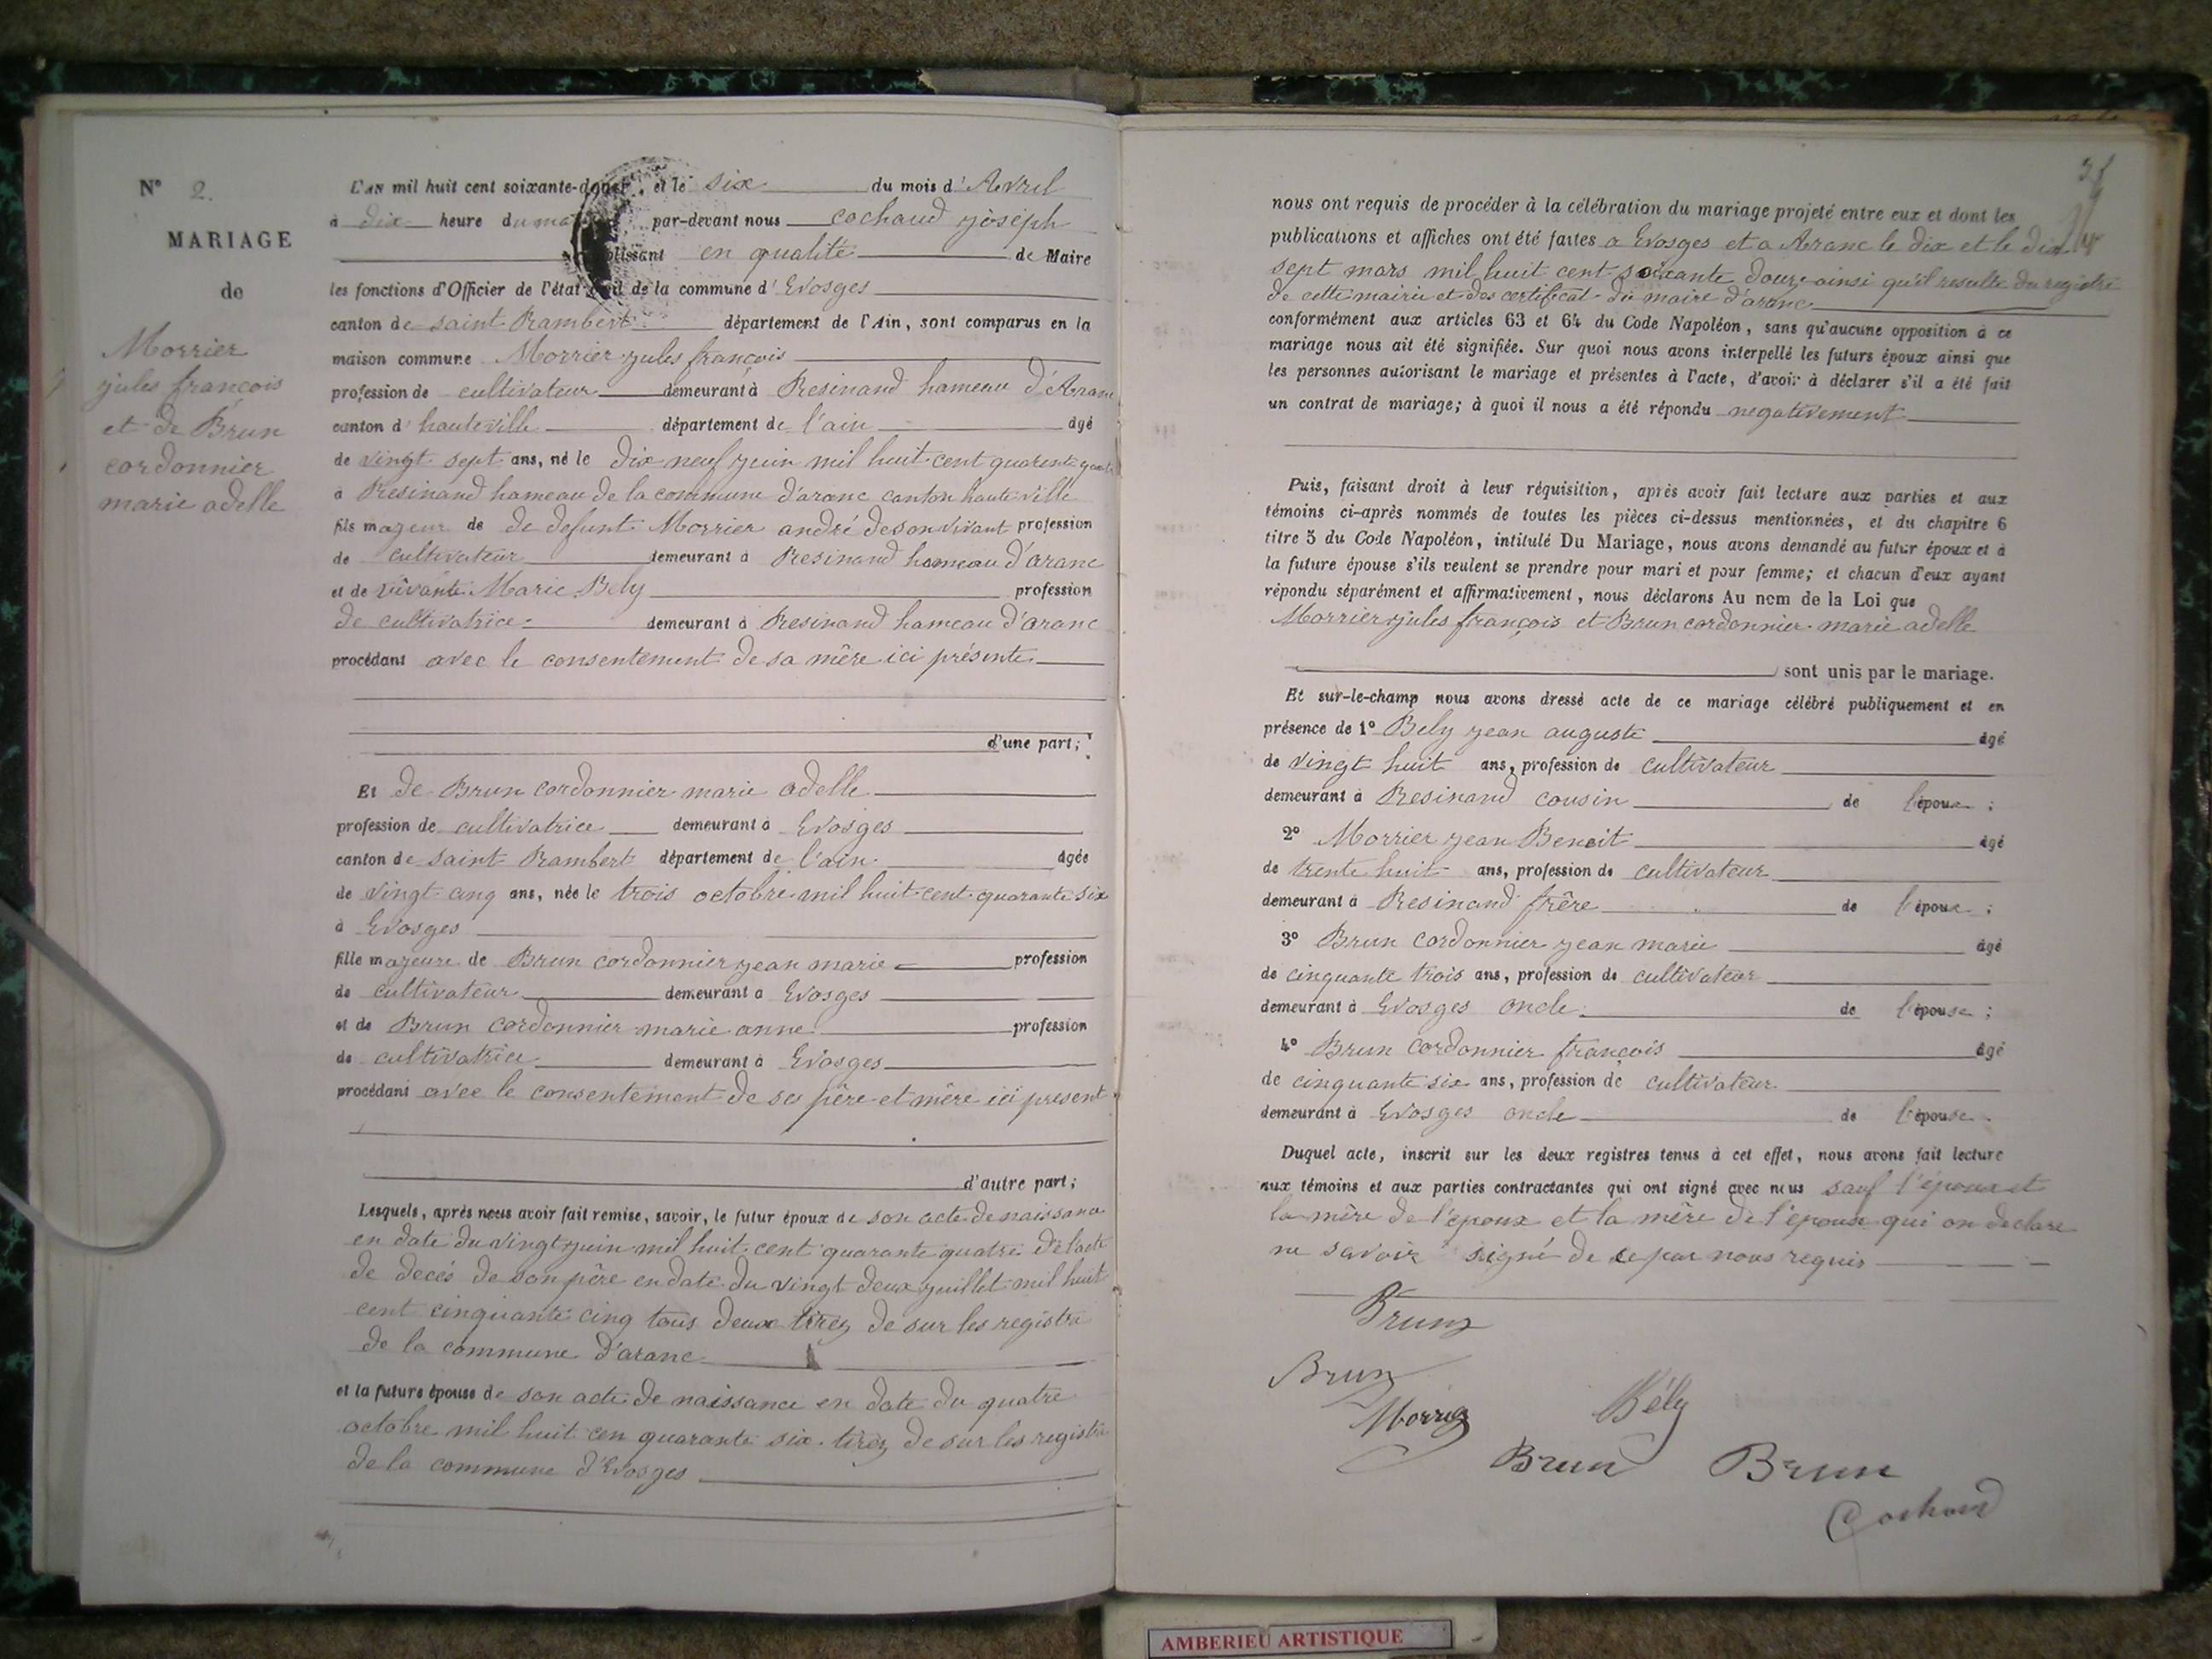 N° 2.
MARIAGE
de
Morrier
jules françois
et de Brun
cordonnier
marie adelle
L'AN mil huit cent soixante-douze, et le six du mois d'Avril
à dix heure du matin par-devant nous cochaud joseph
remplissant en qualité de Maire
les fonctions d'Officier de l'état civil de la commune d'Evosges
canton de saint Rambert département de l'Ain, sont comparus en la
maison commune Morrier jules françois
profession de cultivateur demeurant à Resinand hameau d'Aranc
canton d'hauteville département de l'ain âgé
de vingt sept ans, né le dix neuf juin mil huit cent quarente
à Resinand hameau de la commune d'aranc canton hauteville
fils majeur de de defunt Morrier andré de son vivant profession
de cultivateur demeurant à Resinand hameau d'aranc
et de vivante Marie Bely profession
de cultivatrice demeurant à Resinand hameau d'aranc
procédant avec le consentement de sa mère ici présente
d'une part;
Et de Brun cordonnier marie adelle
profession de cultivatrice demeurant à Evosges
canton de saint Rambert département de l'ain âgée
de vingt cinq ans, née le trois octobre mil huit cent quarante six
à Evosges
fille majeure de Brun cordonnier jean marie profession
de cultivateur demeurant à Evosges
et de Brun cordonnier marie anne profession
de cultivatrice demeurant à Evosges
procédant avec le consentement de ses père et mère ici present
d'autre part;
Lesquels, après nous avoir fait remise, savoir, le futur époux de son acte de naissance
en date du vingt juin mil huit cent quarante quatre de l'acte
de decés de son père en date du vingt deux juillet mil huit
cent cinquante cinq tous deux tirez de sur les registre
de la commune d'aranc
et la future épouse de son acte de naissance en date du quatre
octobre mil huit cen quarante six tirez de sur les registre
de la commune d'Evosges
nous ont requis de procéder à la célébration du mariage projeté entre eux et dont les
publications et affiches ont été faites a Evosges et a Aranc le dix et le dix
sept mars mil huit cent soixante douze ainsi qu'il resulte du registre
de cette mairie et des certificat du maire d'aranc
conformément aux articles 63 et 64 du Code Napoléon, sans qu'aucune opposition à ce
mariage nous ait été signifiée. Sur quoi nous avons interpellé les futurs époux ainsi que
les personnes autorisant le mariage et présentes à l'acte, d'avoir à déclarer s'il a été fait
un contrat de mariage; à quoi il nous a été répondu negativement
Puis, faisant droit à leur réquisition, après avoir fait lecture aux parties et aux
témoins ci-après nommés de toutes les pièces ci-dessus mentionnées, et du chapitre 6
titre 5 du Code Napoléon, intitulé Du Mariage, nous avons demandé au futur époux et à
la future épouse s'ils veulent se prendre pour mari et pour femme; et chacun d'eux ayant
répondu séparément et affirmativement, nous déclarons Au nom de la Loi que
Morrier jules françois et Brun cordonnier marie adelle
sont unis par le mariage.
Et sur-le-champ nous avons dressé acte de ce mariage célébré publiquement et en
présence de 1° Bely jean auguste âgé
de vingt huit ans, profession de cultivateur
demeurant à Resinand cousin de l'époux ;
2° Morrier jean Benoit âgé
de trente huit ans, profession de cultivateur
demeurant à Resinand frêre de l'époux ;
3° Brun cordonnier jean marie âgé
de cinquante trois ans, profession de cultivateur
demeurant à Evosges oncle de l'épouse ;
4° Brun cordonnier françois âgé
de cinquante six ans, profession de cultivateur
demeurant à Evosges oncle de l'épouse.
Duquel acte, inscrit sur les deux registres tenus à cet effet, nous avons fait lecture
aux témoins et aux parties contractantes qui ont signé avec nous sauf l'époux et
la mère de l'epoux et la mère de l'épouse qui on declare
ne savoir signé de ce par nous requis
Brun
Brun
Morrier
Bély
Brun Brun
Cochaud
AMBERIEU ARTISTIQUE